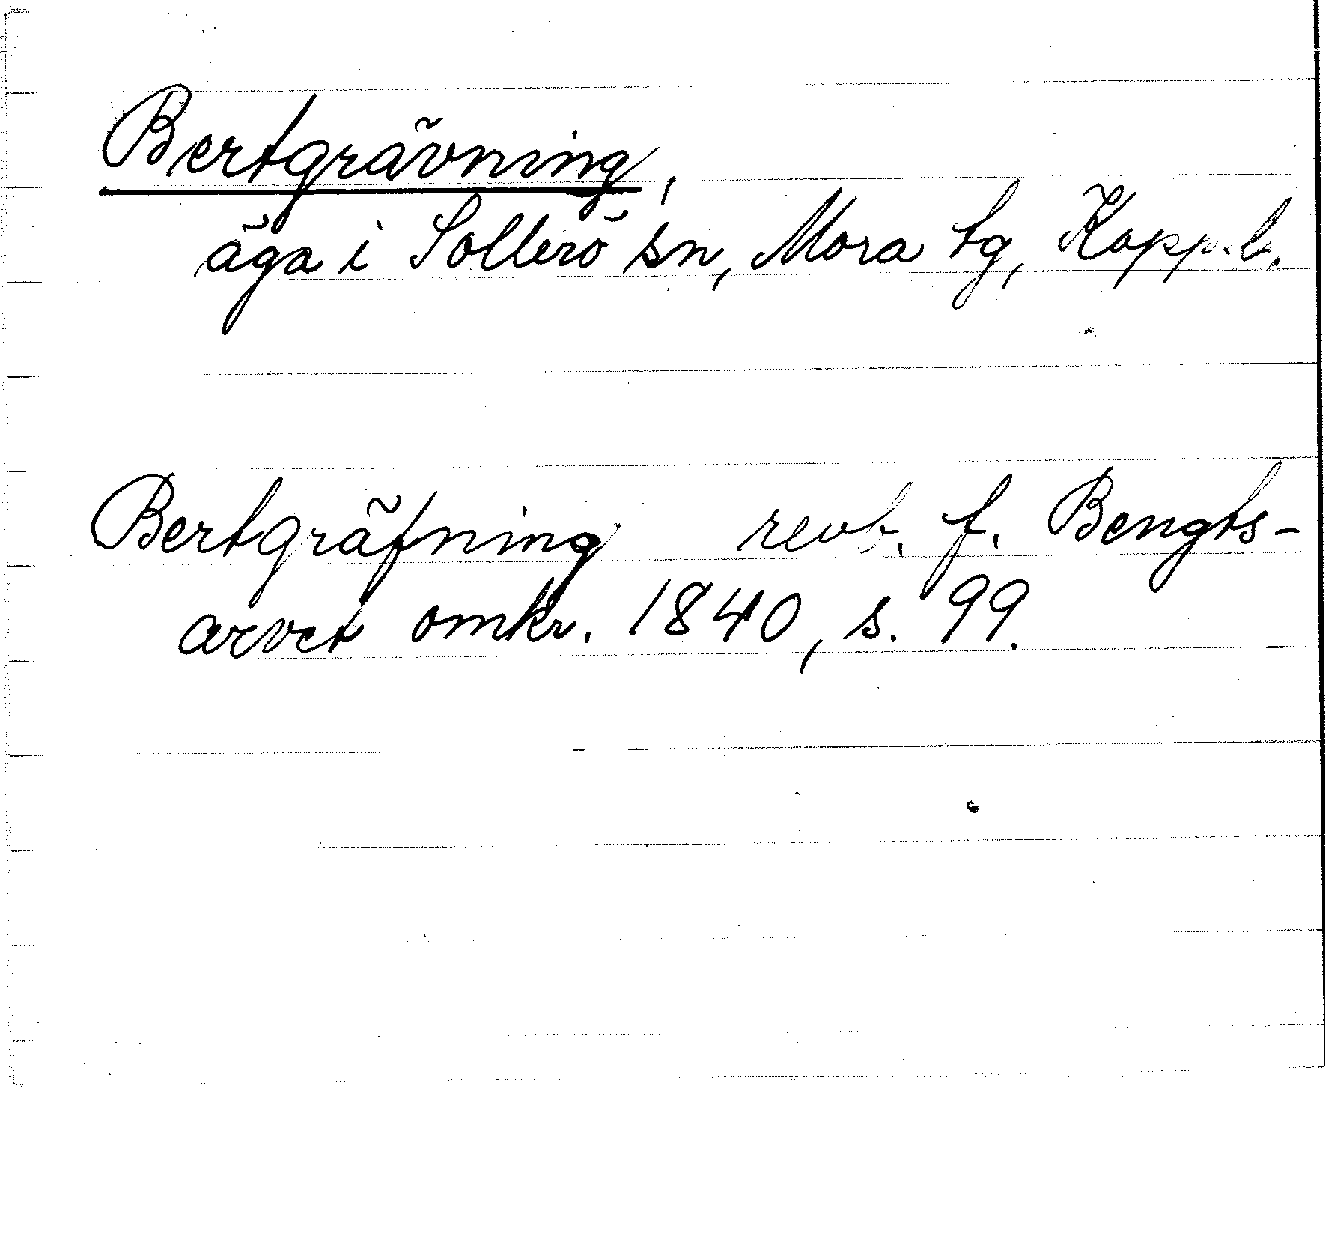 Bertgrävning,
äga i Sollerö sn, Mora tg, Kopp.l.
Bertgräfning revb. f. Bengts-
arvet omkr. 1840, s. 99.